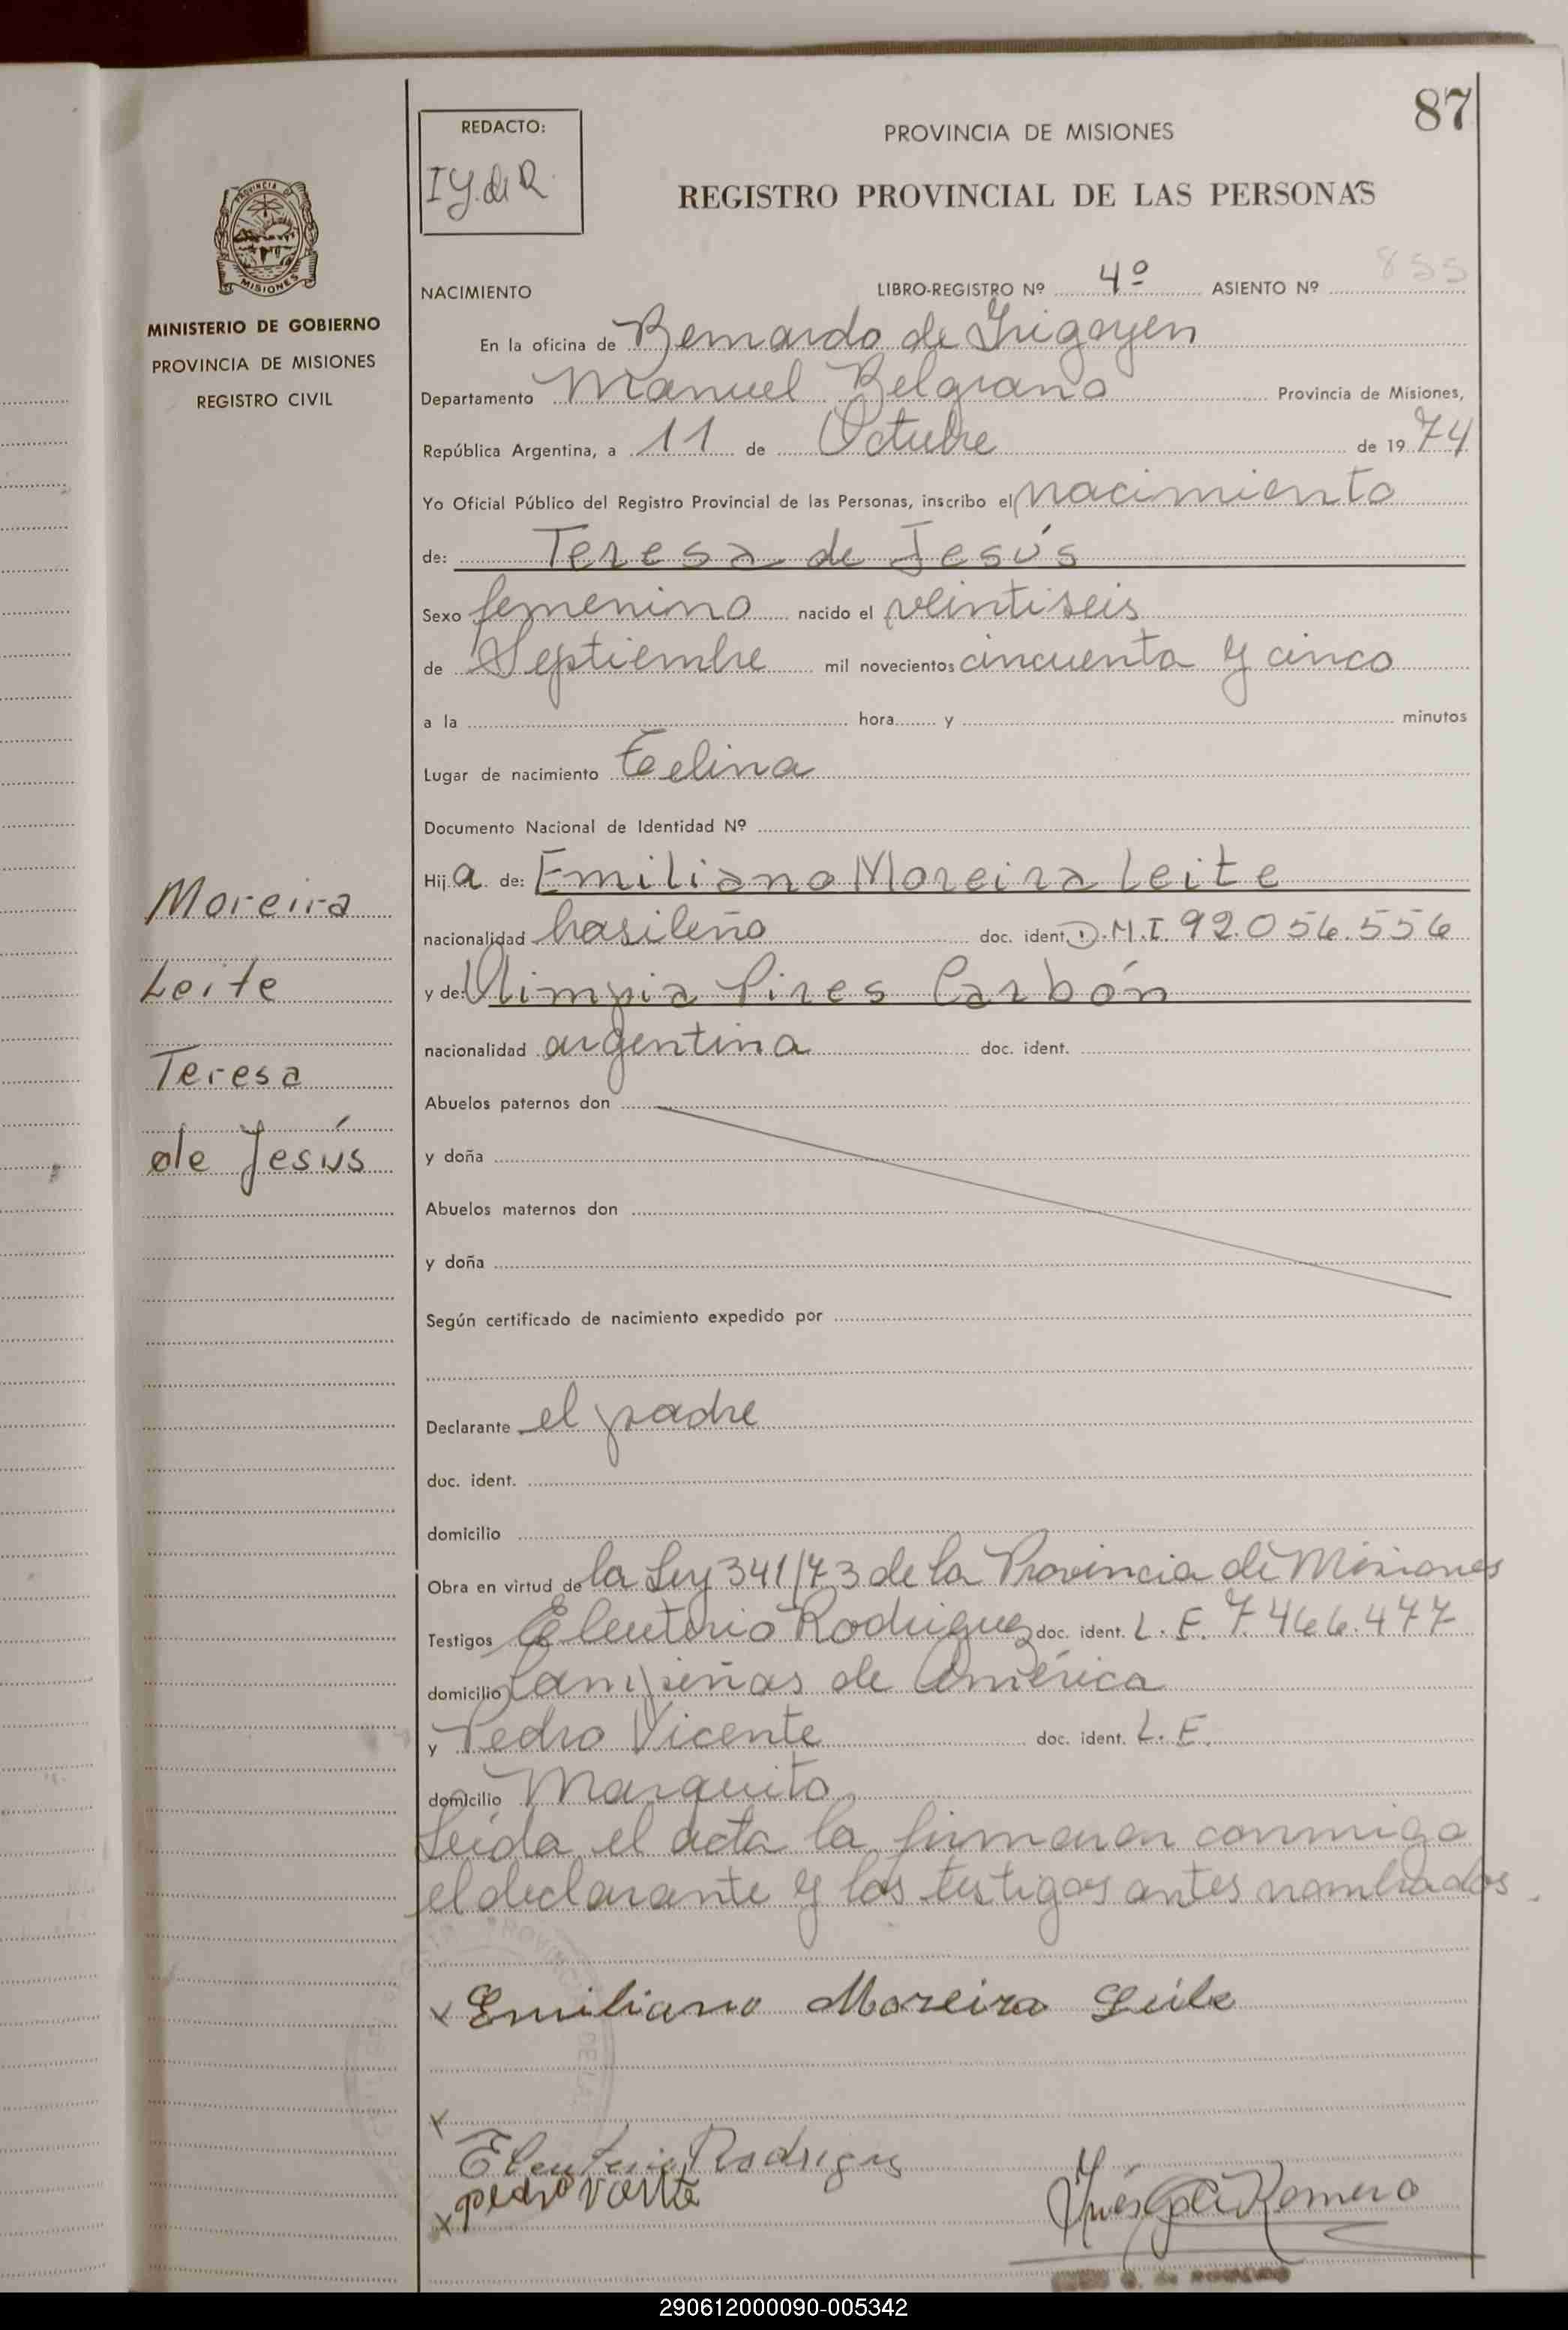 87
REDACTO:
I Y. de R.
PROVINCIA DE MISIONES
REGISTRO PROVINCIAL DE LAS PERSONAS
PROVINCIA DE
MISIONES
MINISTERIO DE GOBIERNO
PROVINCIA DE MISIONES
REGISTRO CIVIL
NACIMIENTO LIBRO-REGISTRO Nº 4º ASIENTO Nº 855
En la oficina de Bernardo de Irigoyen
Departamento Manuel Belgrano Provincia de Misiones,
República Argentina, a 11 de Octubre de 1974
Yo Oficial Público del Registro Provincial de las Personas, inscribo el nacimiento
de: Teresa de Jesús
Sexo femenino nacido el veintiseis
de Septiembre mil novecientos cincuenta y cinco
a la hora y minutos
Lugar de nacimiento
Documento Nacional de Identidad Nº
Hija de: Emiliano Moreira Leite
nacionalidad brasileño doc. ident. D.N.I. 92.056.556
y de: Olimpia Pires Carbón
nacionalidad argentina doc. ident.
Abuelos paternos don
y doña
Abuelos maternos don
y doña
Según certificado de nacimiento expedido por
Declarante el padre
doc. ident.
domicilio
Obra en virtud de la Ley 341/73 de la Provincia de Misiones
Testigos Eleuterio Rodriguez doc. ident. L.E. 7.466.477
domicilio Campiñas de América
y Pedro Vicente doc. ident. L.E.
domicilio Marquito
Leída el acta la firmaron conmigo
el declarante y los testigos antes nombrados.
Moreira
Leite
Teresa
de Jesús
x Emiliano Moreira Leite
x
Eleuterio Rodrigues
x pedro
Inés Romero
290612000090-005342